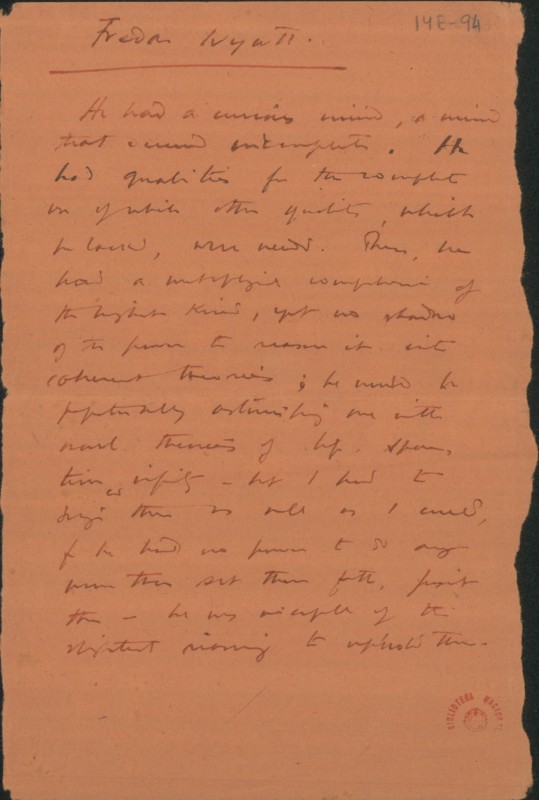 14E-94
Freda Wyatt.
He had a curious mind, a mind
that seemed incomplete. He
had qualities for the complete
use of which other qualities, which
he lacked, were needed. Thus, he
had a metaphysical comprehension of
the highest kind, yet no shadow
of the power to reason it into
coherent theories; he would be
perpetually astonishing me with
novel theories of life, space,
time or infinity — but I had to
them as well as I could,
for he had no power to do any
more than set them forth, posit
them — he was incapable of the
slightest reasoning to uphold them.
BIBLIOTECA NACIONAL